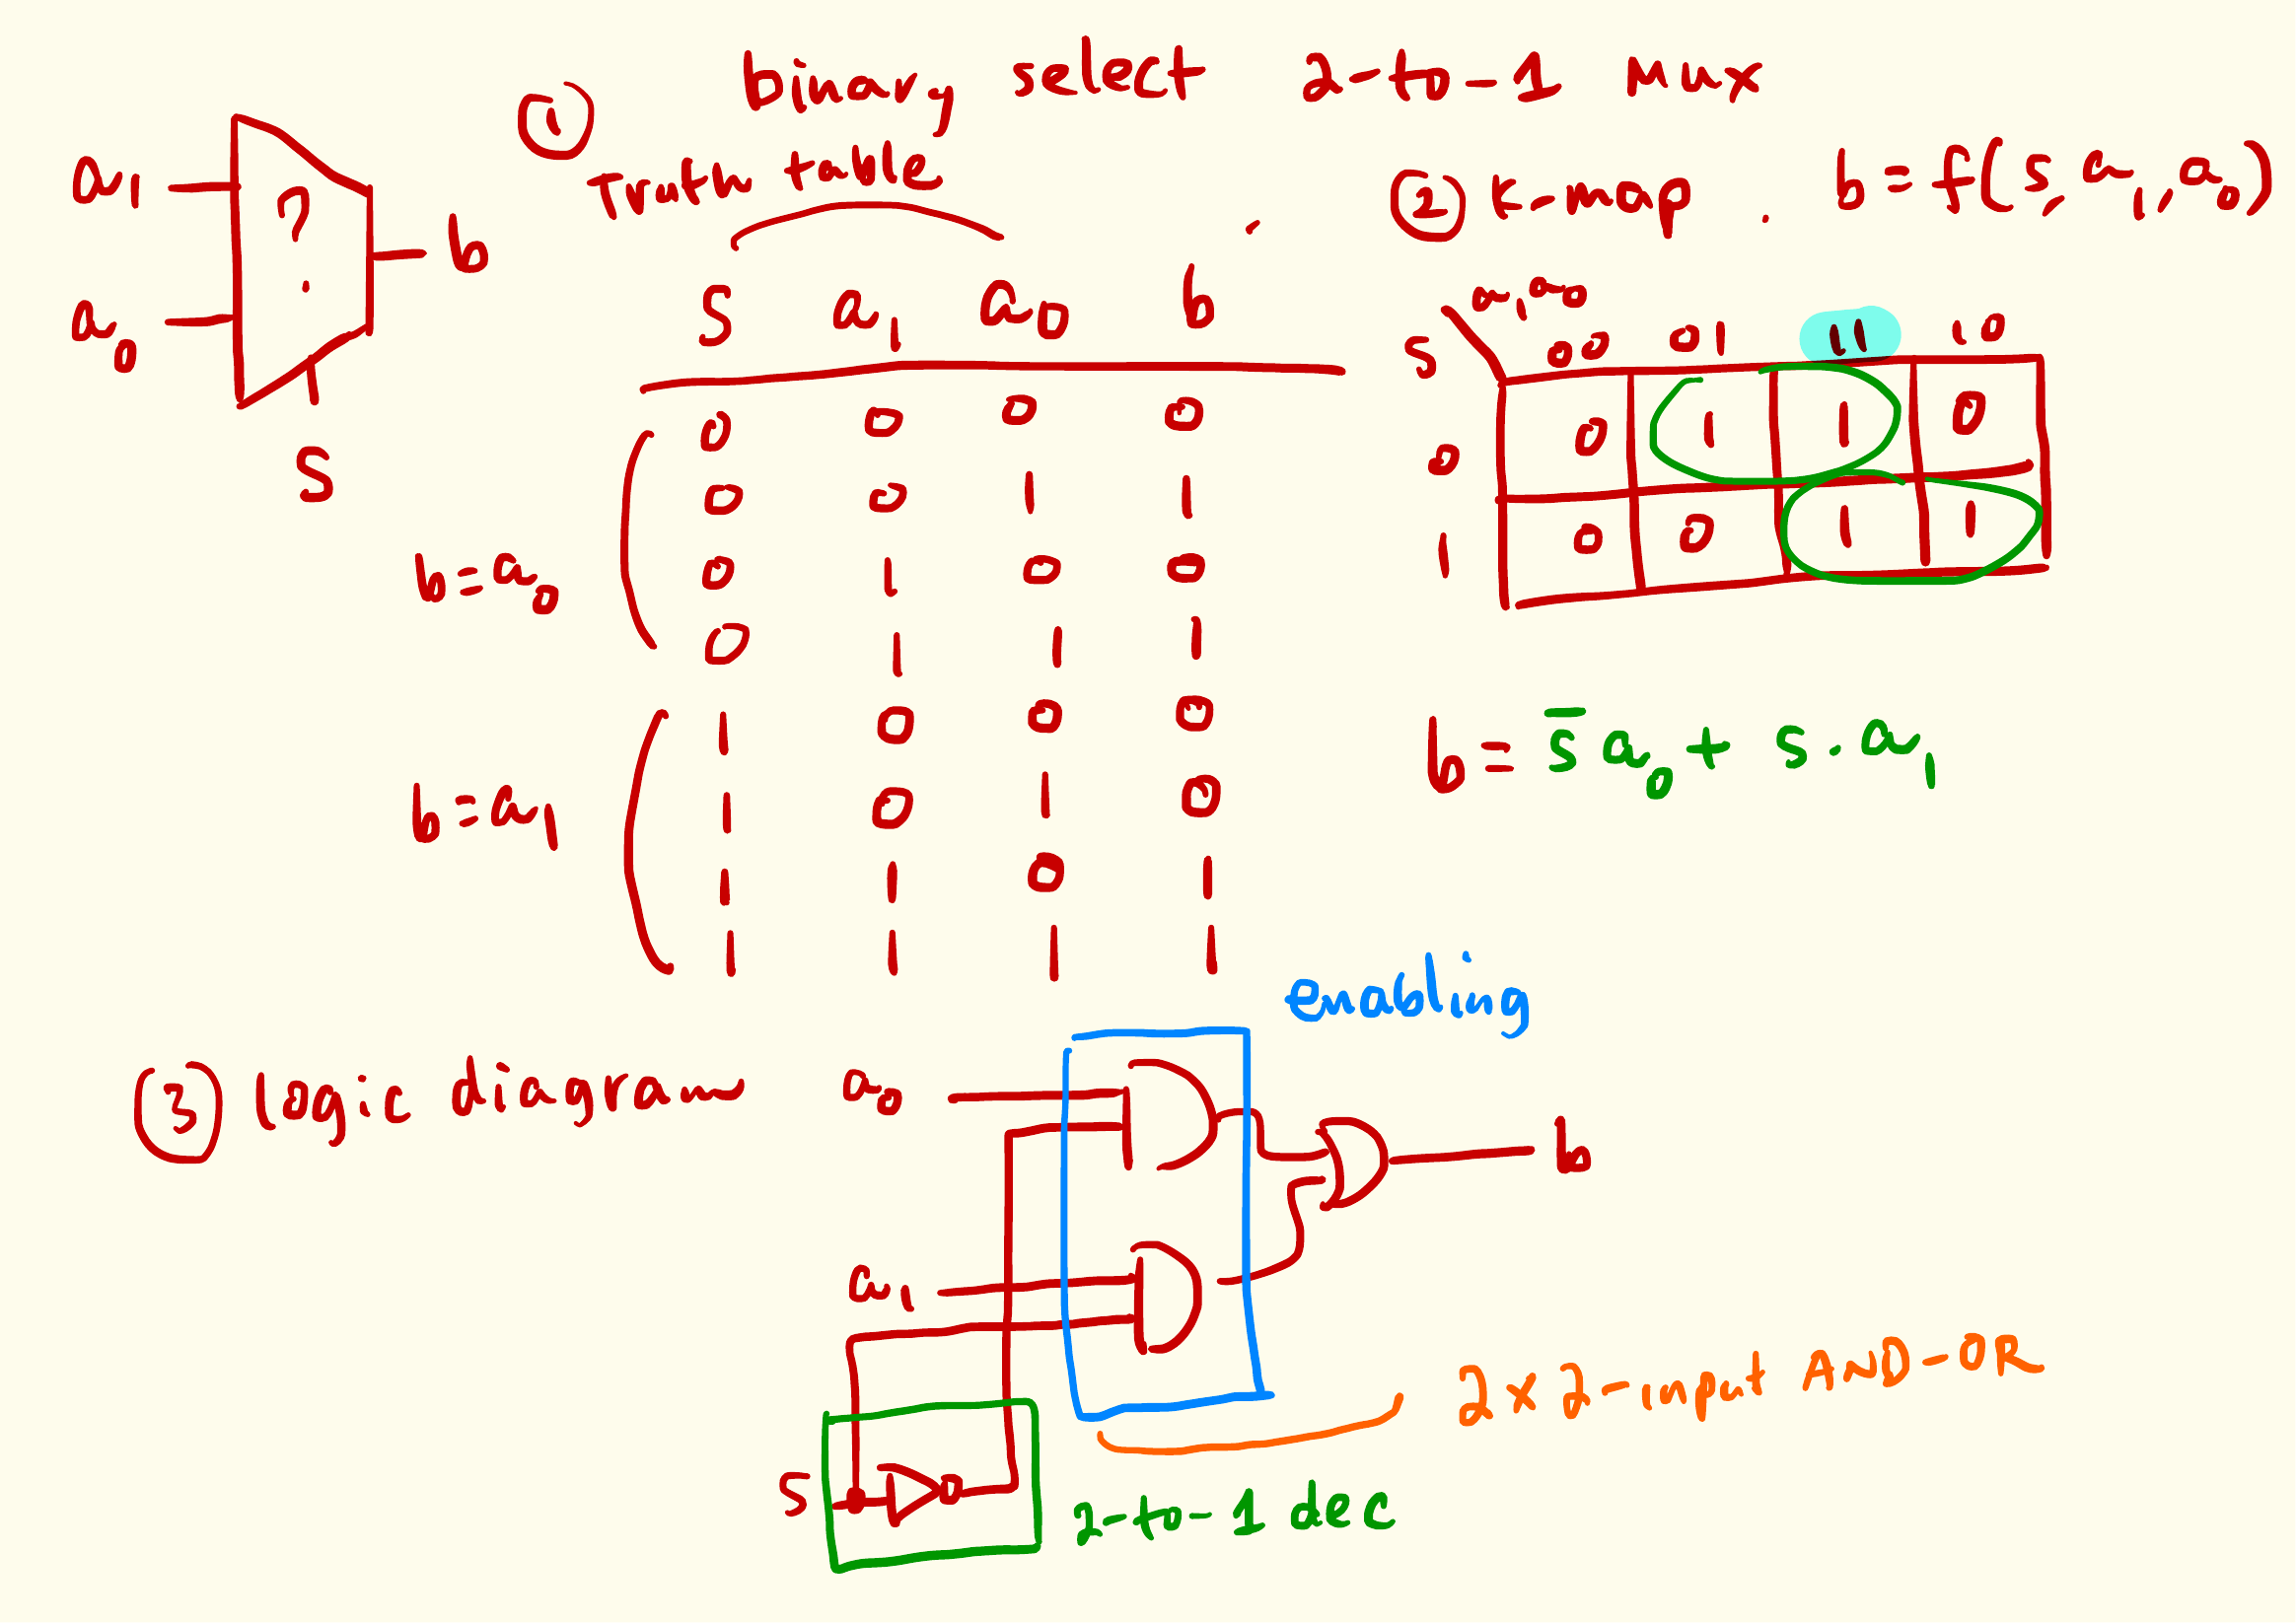 binary select 2-to-1 Mux
a1
a0
?
b
S
① Truth table
S a1 a0 b
0 0 0 0
0 0 1 1
0 1 0 0
0 1 1 1
1 0 0 0
1 0 1 0
1 1 0 1
1 1 1 1
b=a0
b=a1
② K-map. b=f(s,a1,a0)
S a1a0
00 01 11 10
0 0 1 1 0
1 0 0 1 1
b= s̅a0+ s.a1
③ logic diagram
a0
a1
S
enabling
b
2x2-input AND-OR
2-to-1 dec